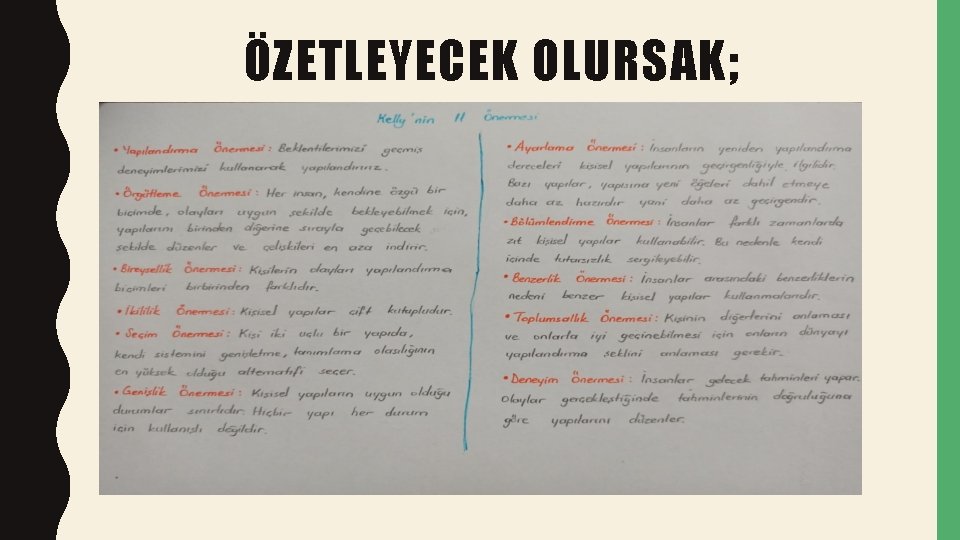 ÖZETLEYECEK OLURSAK;
Kelly'nin 11 Önermesi
• Yapılandırma Önermesi: Beklentilerimizi geçmiş
deneyimlerimizi kullanarak yapılandırırız.
• Örgütleme Önermesi: Her insan, kendine özgü bir
biçimde, olayları uygun şekilde bekleyebilmek için,
yapılarını birinden diğerine sırayla geçebilecek
şekilde düzenler ve çelişkileri en aza indirir.
• Bireysellik Önermesi: Kişilerin olayları yapılandırma
biçimleri birbirinden farklıdır.
• İkililik Önermesi: Kişisel yapılar çift kutupludur.
• Seçim Önermesi: Kişi iki uçlu bir yapıda,
kendi sistemini genişletme, tanımlama olasılığının
en yüksek olduğu alternatifi seçer.
• Genişlik Önermesi: Kişisel yapıların uygun olduğu
durumlar sınırlıdır. Hiçbir yapı her durum
için kullanışlı değildir.
• Ayarlama Önermesi: İnsanların yeniden yapılandırma
dereceleri kişisel yapılarının geçirgenliğiyle ilgilidir.
Bazı yapılar, yapısına yeni öğeleri dahil etmeye
daha az hazırdır yani daha az geçirgendir.
• Bölümlendirme Önermesi: İnsanlar farklı zamanlarda
zıt kişisel yapılar kullanabilir. Bu nedenle kendi
içinde tutarsızlık sergileyebilir.
• Benzerlik Önermesi: İnsanlar arasındaki benzerliklerin
nedeni benzer kişisel yapılar kullanmalarıdır.
• Toplumsallık Önermesi: Kişinin diğerlerini anlaması
ve onlarla iyi geçinebilmesi için onların dünyayı
yapılandırma şeklini anlaması gerekir.
• Deneyim Önermesi: İnsanlar gelecek tahminleri yapar.
Olaylar gerçekleştiğinde tahminlerinin doğruluğuna
göre yapılarını düzenler.